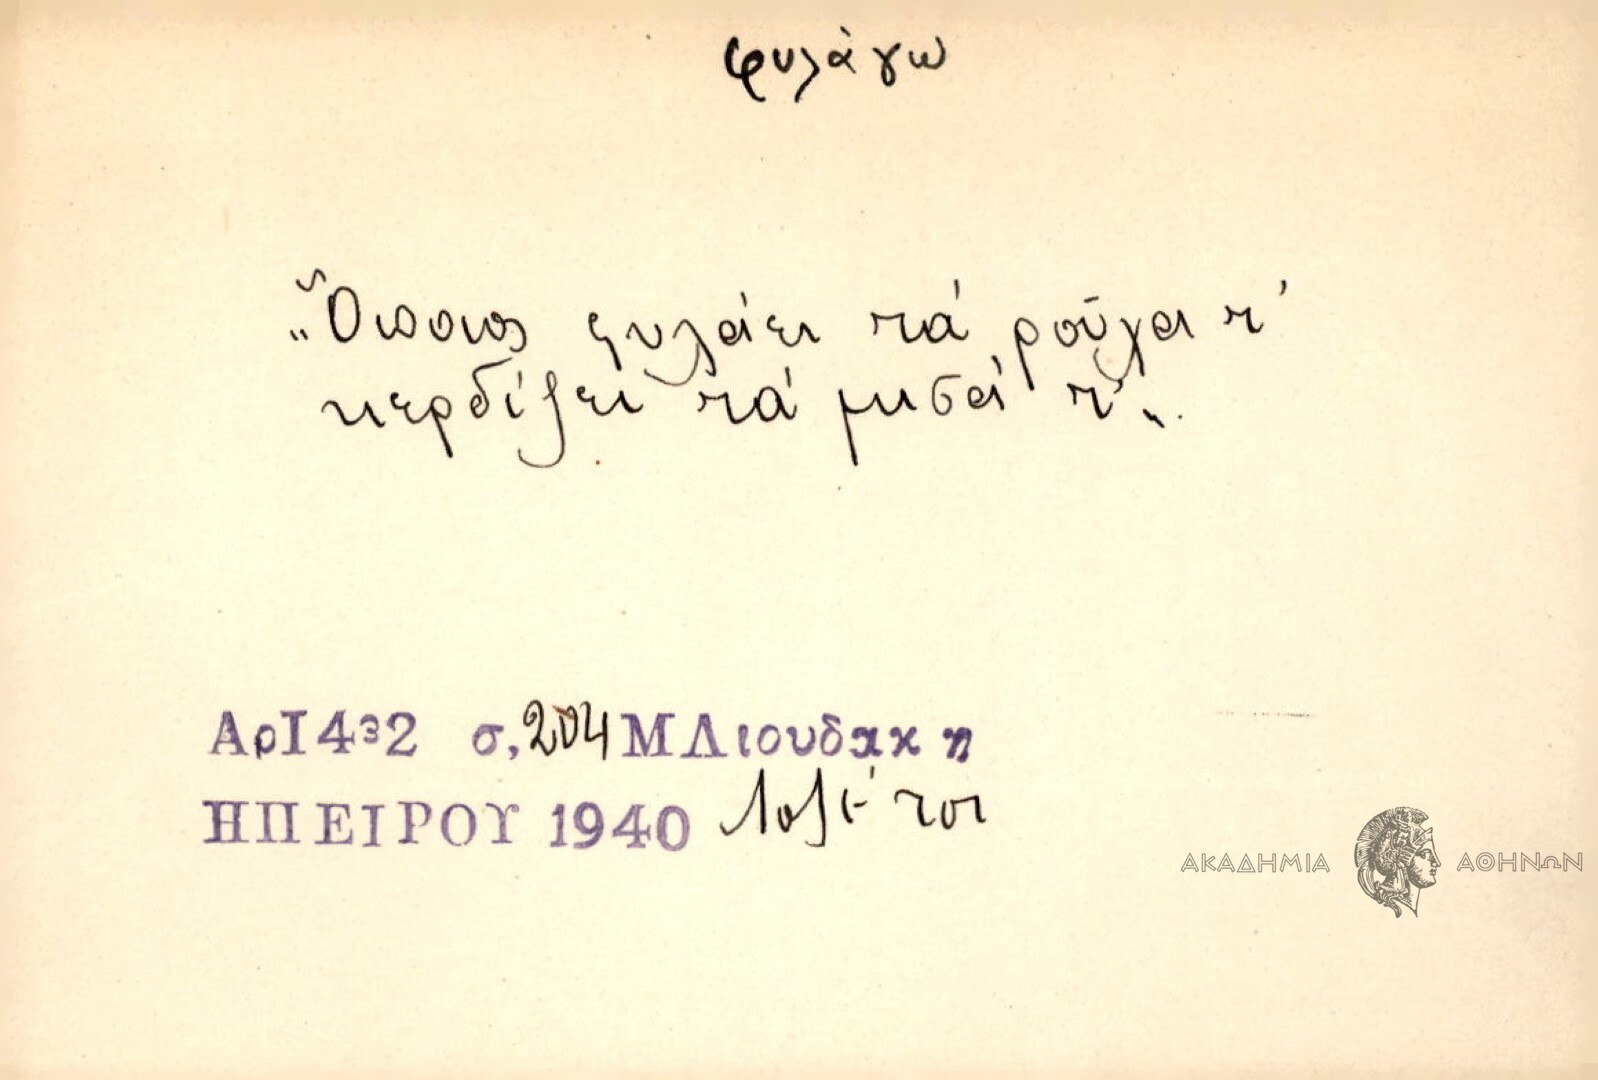 φυλάγω
„Ὅποιος φυλάει τά ροῦχα τ'
κερδίζει τά μισά τ'„.
Αρ1432 σ, 204 Μ Λιουδακη
ΗΠΕΙΡΟΥ 1940
ΑΚΑΔΗΜΙΑ ΑΘΗΝΩΝ